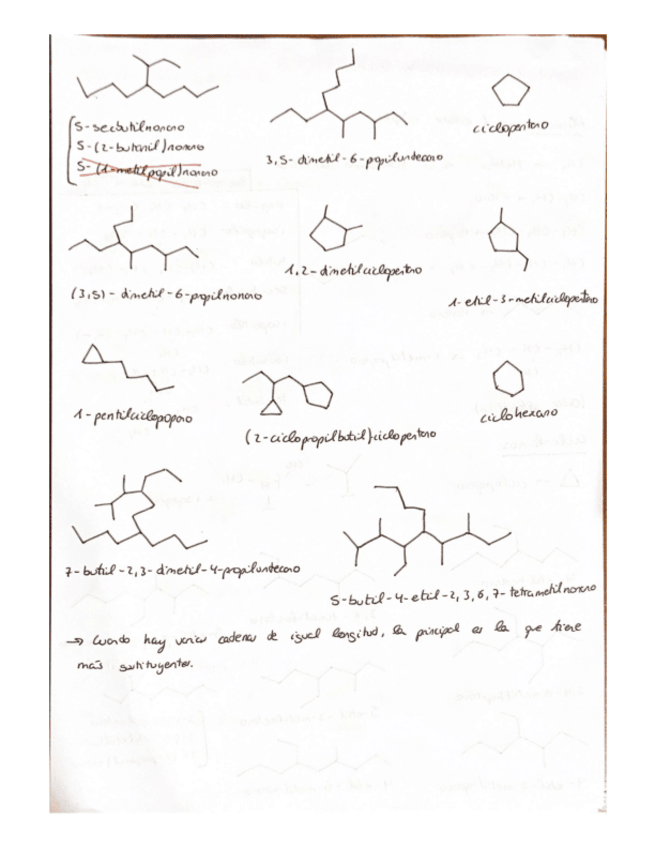 5-secbutilnonano
5-(2-butanil)nonano
5-(1-metilpropil)nonano
3,5-dimetil-6-propilundecano
ciclopentano
(3,5)-dimetil-6-propilnonano
1,2-dimetilciclopentano
1-etil-3-metilciclopentano
1-pentilciclopropano
(2-ciclopropilbutil)ciclopentano
ciclohexano
7-butil-2,3-dimetil-4-propilundecano
5-butil-4-etil-2,3,6,7-tetrametilnonano
→ Cuando hay varias cadenas de igual longitud, la principal es la que tiene
más sustituyentes.